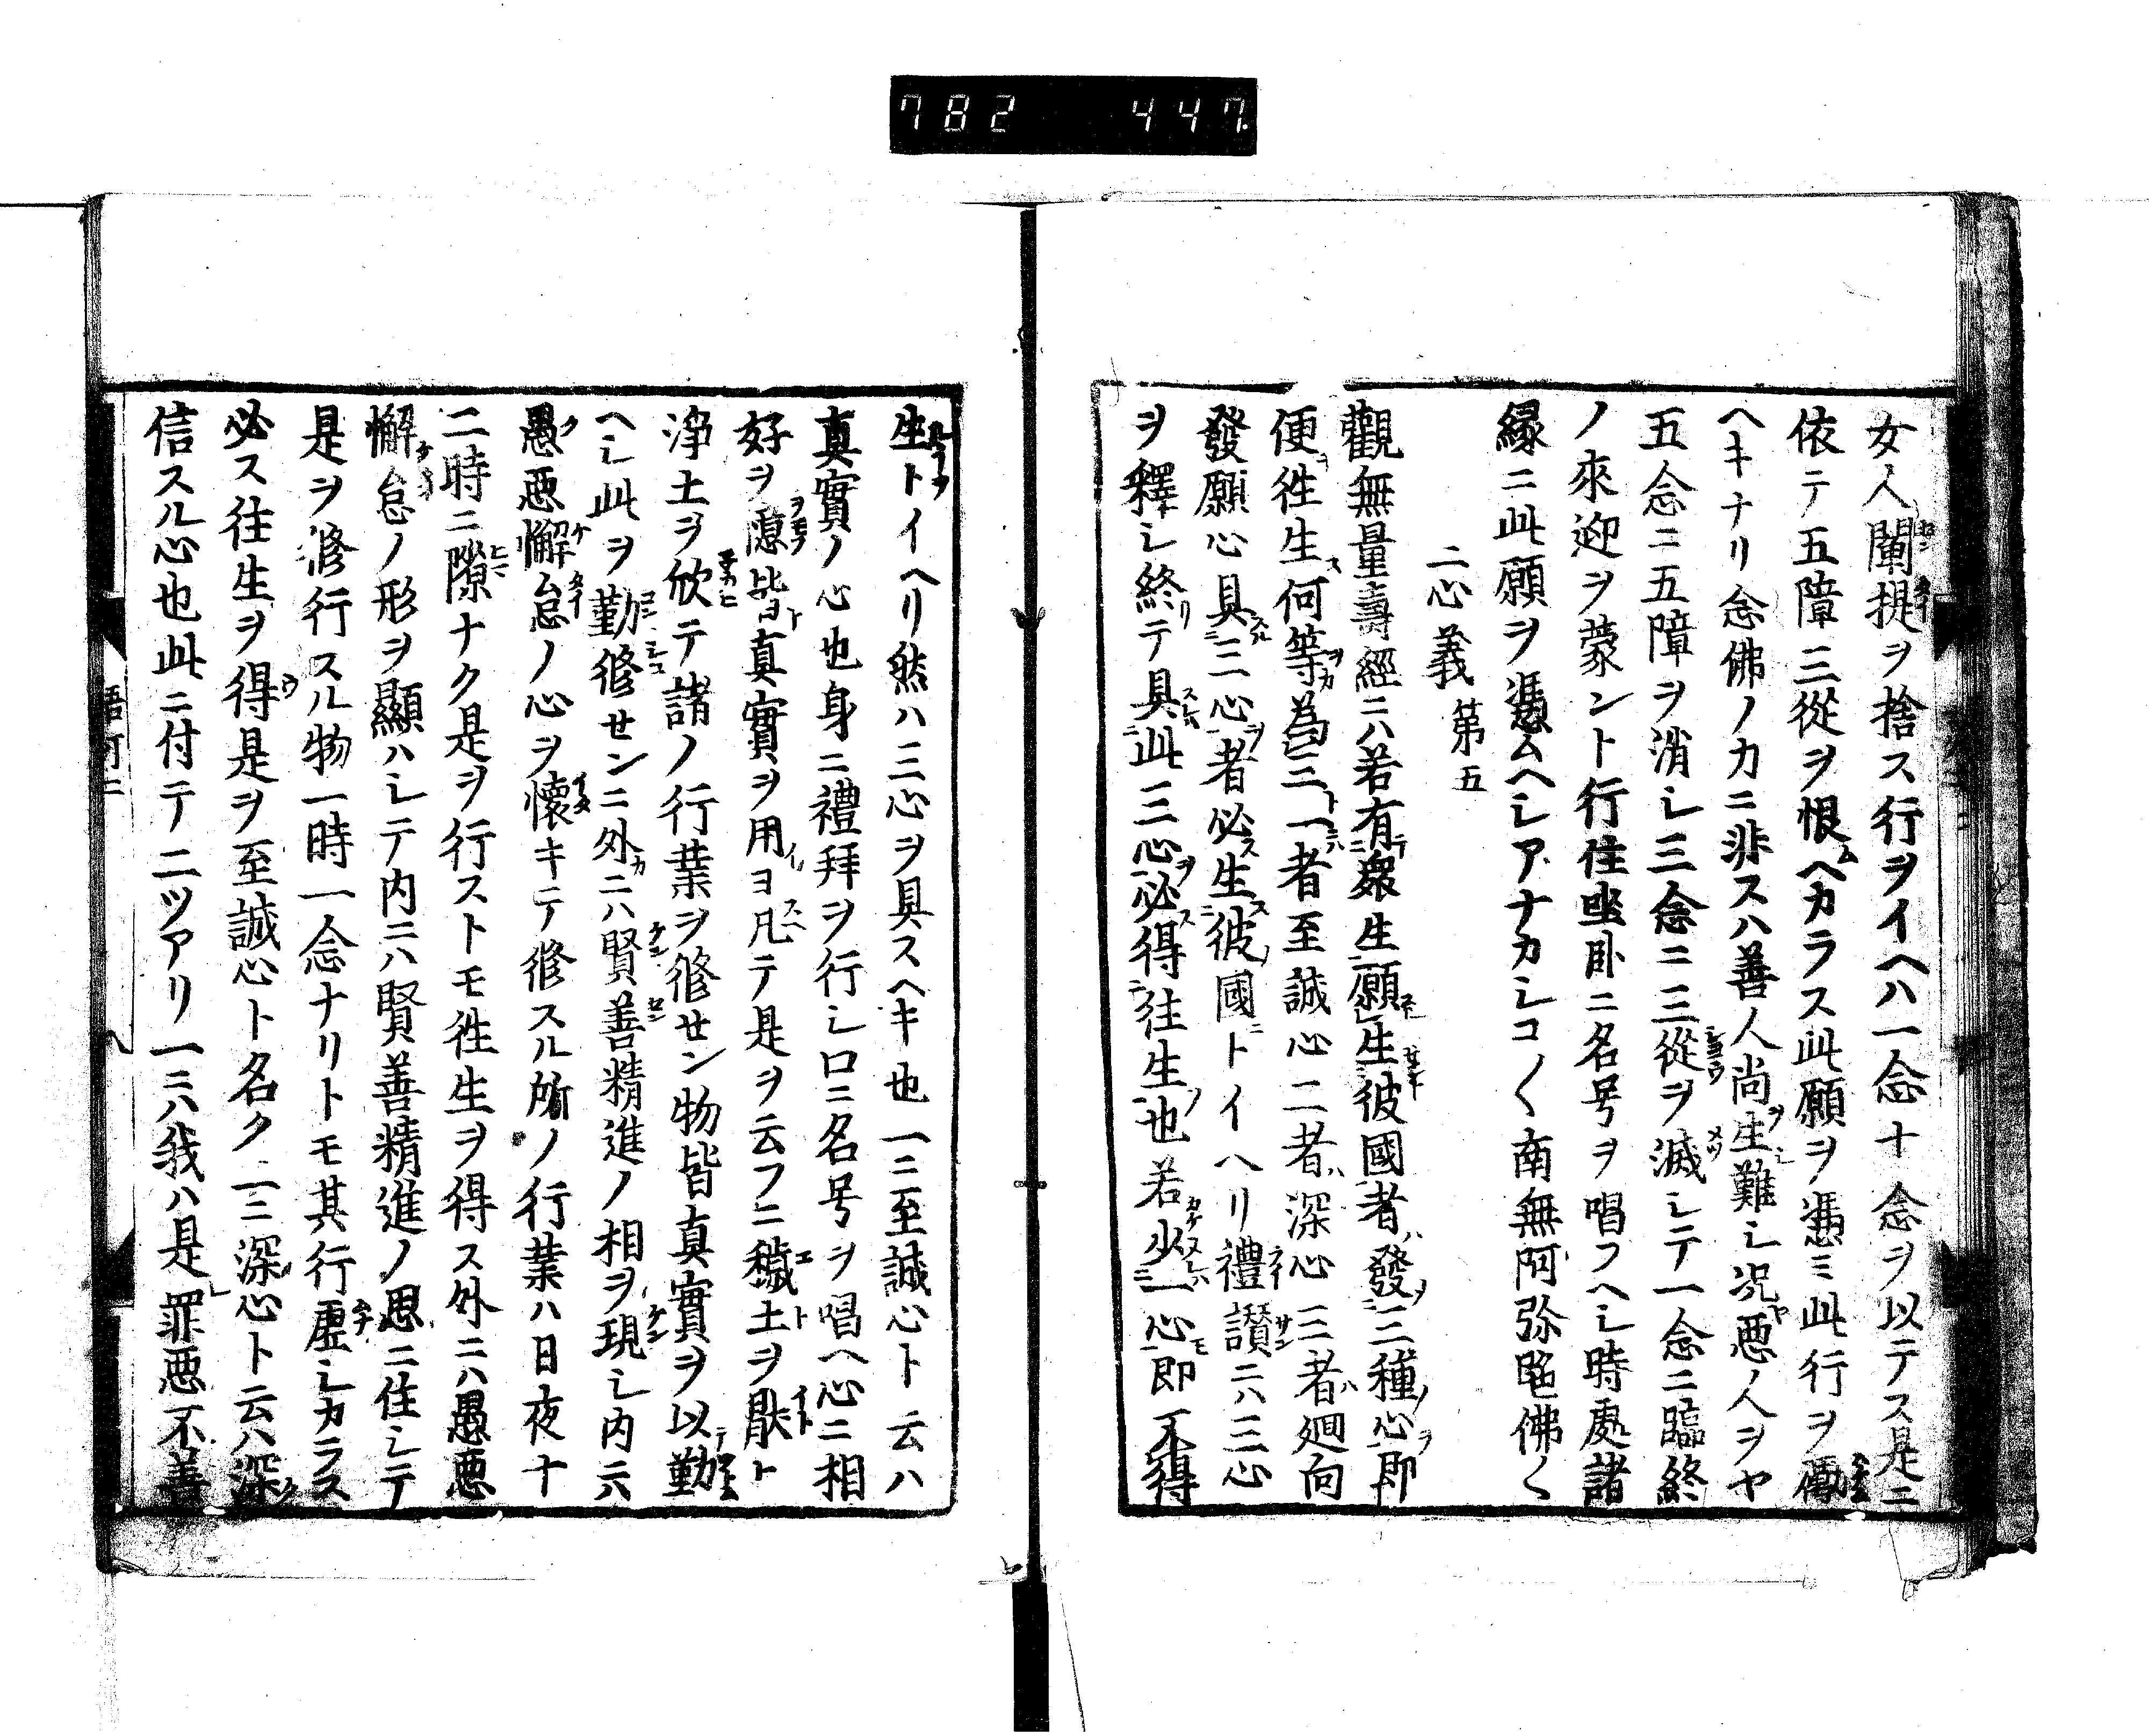 782 447
女人闡提ヲ捨ス行ヲイヘハ一念十念ヲ以テス是ニ
依テ五障三從ヲ恨ヘカラス此願ヲ憑ミ此行ヲ勵
ヘキナリ念佛ノカニ非スハ善人尚生難シ况悪人ヲヤ
五念ニ五障ヲ消シ三念ニ三從ヲ滅シテ一念ニ臨終
ノ來迎ヲ蒙ント行住坐臥ニ名号ヲ唱フヘシ時處諸
縁ニ此願ヲ憑ムヘシアナカシコ〱南無阿弥陀佛〱
二心義第五
觀無量壽經ニハ若有衆生願生彼國者發三種心即
便徃生何等為三一者至誠心二者深心三者廻向
發願心具三心者必生彼國トイヘリ禮讃ニハ三心
ヲ釋シ終テ具此三心必得往生也若少一心即不得
生トイヘリ然ハ三心ヲ具スヘキ也一ニ至誠心ト云ハ
真實ノ心也身ニ禮拜ヲ行シ口ニ名号ヲ唱ヘ心ニ相
好ヲ慮皆真實ヲ用ヨ凡テ是ヲ云フニ穢土ヲ厭ト
浄土ヲ欣テ諸ノ行業ヲ修せン物皆真實ヲ以勤
ヘシ此ヲ勤修せンニ外ニハ賢善精進ノ相ヲ現シ内六
愚悪懈怠ノ心ヲ懷キテ修スル所ノ行業ハ日夜十
二時ニ隙ナク是ヲ行ストモ徃生ヲ得ス外ニハ愚悪
懈怠ノ形ヲ顯ハシテ内ニハ賢善精進ノ思ニ住シテ
是ヲ修行スル物一時一念ナリトモ其行虚シカラス
必ス往生ヲ得是ヲ至誠心ト名ク一ニ深心ト云ハ深
信スル心也此ニ付テ二ツアリ一ニハ我ハ是罪悪不善